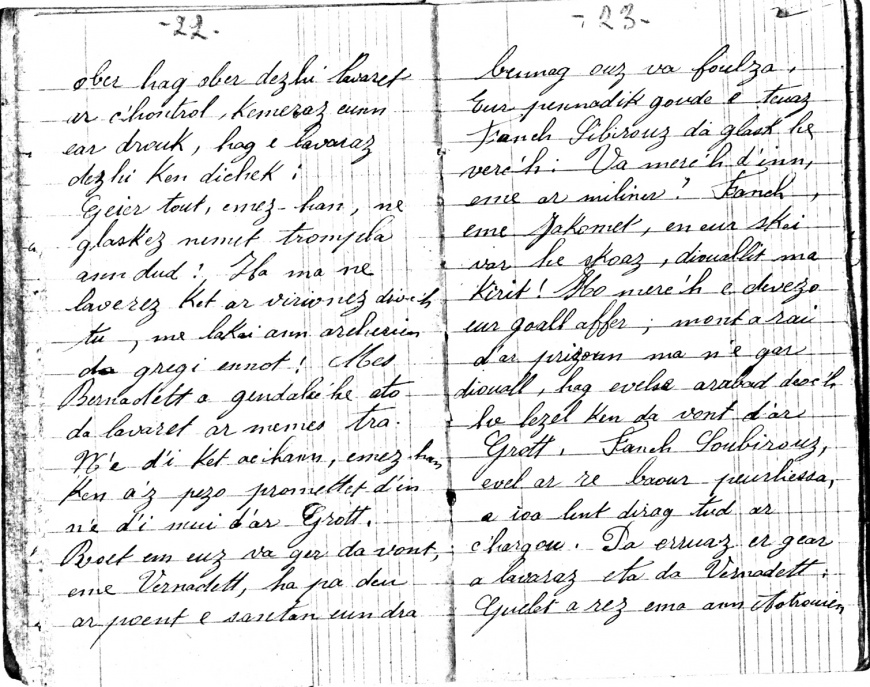 -22-
ober hag ober dezhi lavaret
ar c'hontrol, kemeraz eunn
ear drouk, hag e lavaraz
dezhi ken dichek :
Geier tout, emez-han, ne
glaskez nemet trompla
ann dud ! Ha ma ne
laverez ket ar virionez dioc'h
tu, me lakai ann archerien
da gregi ennot ! Mes
Bernadett a gendalc'he ato
da lavaret ar memes tra.
N'e d'i ket ac'hann, emez han
ken a'z pezo promettet d'in
n'e d'i mui d'ar Grott.
Roet em euz va ger da vont,
eme Vernadett, ha pa deu
ar poent e santan eun dra
-23-
bennag ouz va foulza.
Eur pennadik goude e teuaz
Fanch Sibirouz da glask he
verc'h : Va merc'h d'inn,
eme ar miliner ? Fanch,
eme Jakomet, en eur skei
var he skoaz, diouallit ma
kirit ! Ho merc'h e devezo
eur goall affer ; mont a rai
d'ar prizoun ma n'e gar
diouall, hag evelse arabad deoc'h
he lezel ken da vont d'ar
Grott. Fanch Soubirouz,
evel ar re baour peurliessa,
a ioa lent dirag tud ar
c'hargou. Pa erruaz er gear
a lavaraz eta da Vernadett :
Guelet a rez ema ann Aotrounien